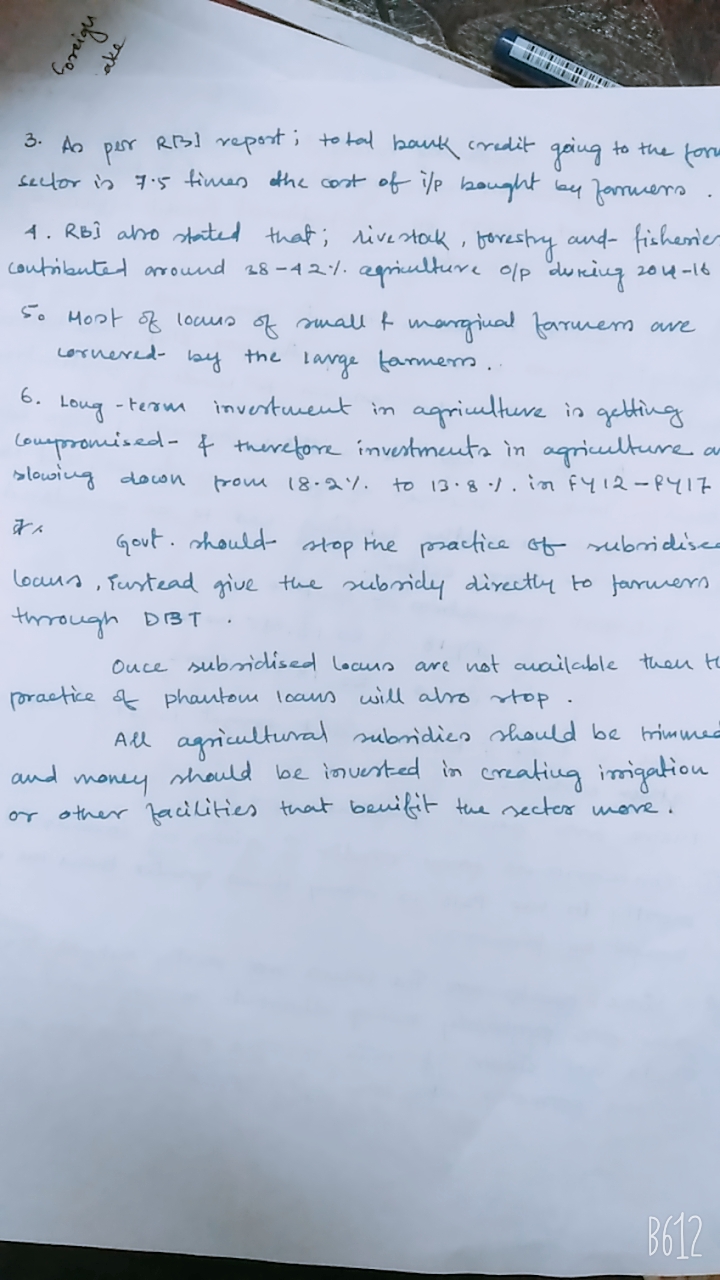 foreign
ake
3. As per RBI report; total bank credit going to the form
sector is 7.5 times the cost of i/p bought by farmers.
4. RBI also stated that; livestock, forestry and fisheries
contributed around 38-42% agriculture o/p during 2014-16
5. Most of loans of small & marginal farmers are
cornered by the large farmers.
6. Long-term investment in agriculture is getting
compromised & therefore investments in agriculture a
slowing down from 18.2% to 13.8%. in FY12-FY17
7.
Govt. should stop the practice of subsidise
loans, instead give the subsidy directly to farmers
through DBT.
Once subsidised loans are not available then th
practice of phantom loans will also stop.
All agricultural subsidies should be trimmed
and money should be invested in creating irrigation
or other facilities that benifit the sector more.
B612